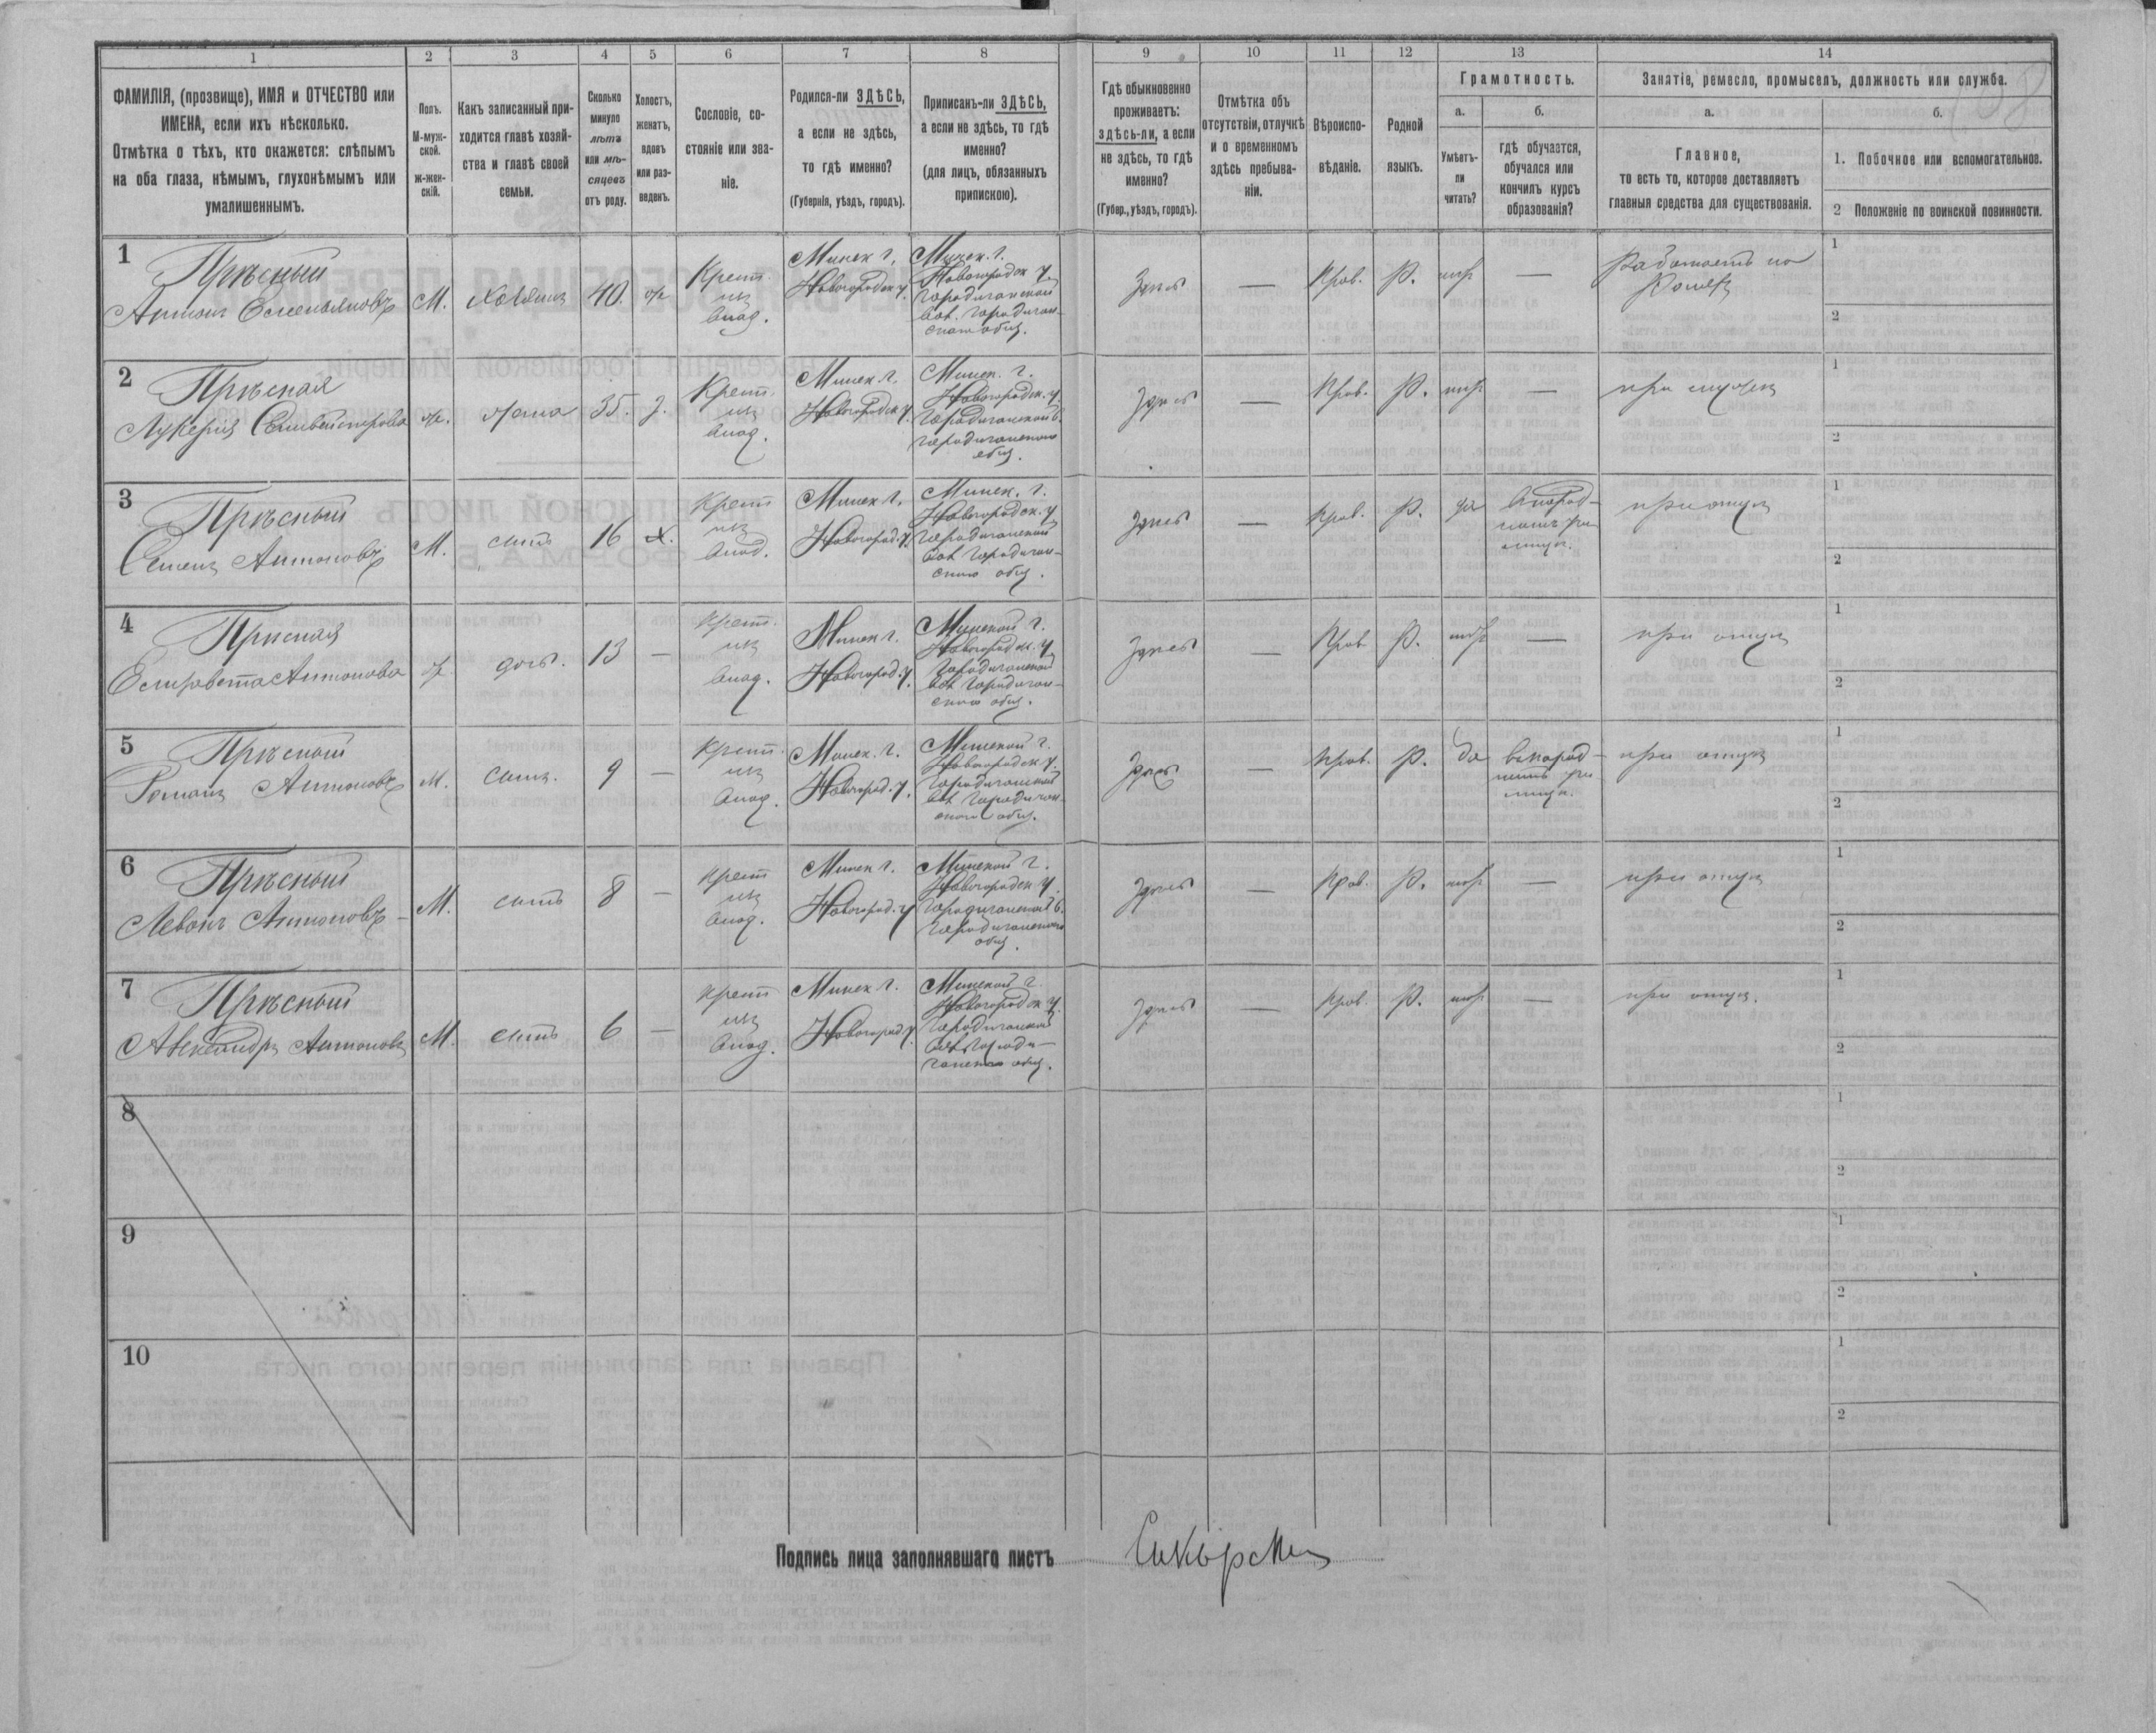 1 2 3 4 5 6 7 8 9 10 11 12 13 14
ФАМИЛІЯ, (прозвище), ИМЯ и ОТЧЕСТВО или
ИМЕНА, если ихъ нѣсколько.
Отмѣтка о тѣхъ, кто окажется: слѣпымъ
на оба глаза, нѣмымъ, глухонѣмымъ или
умалишеннымъ.
Полъ.
М-муж-
ской.
ж-жен-
скій.
Какъ записанный при-
ходится главѣ хозяй-
ства и главѣ своей
семьи.
Сколько
минуло
лѣтъ
или мѣ-
сяцевъ
отъ роду.
Холостъ,
женатъ,
вдовъ
или раз-
веденъ.
Сословіе, со-
стояніе или зва-
ніе.
Родился-ли ЗДѢСЬ,
а если не здѣсь,
то гдѣ именно?
(Губернія, уѣздъ, городъ).
Приписанъ-ли ЗДѢСЬ,
а если не здѣсь, то гдѣ
именно?
(для лицъ, обязанныхъ
припискою).
Гдѣ обыкновенно
проживаетъ:
здѣсь-ли, а если
не здѣсь, то гдѣ
именно?
(Губер., уѣздъ, городъ).
Отмѣтка объ
отсутствіи, отлучкѣ
и о временномъ
здѣсь пребыва-
ніи.
Вѣроиспо-
вѣданіе.
Родной
языкъ.
Грамотность.
а.
Умѣетъ-
ли
читать?
б.
гдѣ обучается,
обучался или
кончилъ курсъ
образованія?
Занятіе, ремесло, промыселъ, должность или служба.
а.
Главное,
то есть то, которое доставляетъ
главныя средства для существованія.
б.
1. Побочное или вспомогательное.
2 Положеніе по воинской повинности.
1
Прѣсный
Антонъ Емельяновъ
М. хозяинъ 40. ж
Крест.
изъ
влад.
Минск г.
Новогрудск у.
Минск. г.
Новогрудск у.
Городищенской
вол. Городищен-
скаго общ.
здѣсь — Прав. Р. нѣтъ —
1
2
2
Прѣсная
Лукерія Сильвестрова
ж. жена 35. з.
Крест.
изъ
влад.
Минск г.
Новогрудск у.
Минск. г.
Новогрудск. у.
Городищенской в.
Городищенскаго
общ.
здѣсь — Прав. Р. нѣтъ —
при мужѣ
1
2
3
Прѣсный
Семенъ Антоновъ
М. сынъ 16 х.
Крест
изъ
влад.
Минск г.
Новогруд. у.
Минск. г.
Новогрудск. у.
Городищенской
вол. Городищен-
скаго общ.
здѣсь — Прав. Р. да
въ народ-
номъ учи-
лищѣ.
при отцѣ
1
2
4
Прѣсная
Елизавета Антонова
ж. дочь. 13 —
Крест.
изъ
влад.
Минск г.
Новогруд. у.
Минской г.
Новогрудск. у.
Городищенской
вол. Городищен-
скаго общ.
здѣсь — Прав Р. нѣтъ —
при отцѣ
1
2
5
Прѣсный
Романъ Антоновъ
М. сынъ. 9 —
Крест.
изъ
влад.
Минск. г.
Новогруд. у.
Минской г.
Новогрудск у.
Городищенской
вол. Городищен-
скаго общ.
здѣсь — Прав. Р. да
въ народ-
номъ учи-
лищѣ.
при отцѣ
1
2
6
Прѣсный
Левонъ Антоновъ
М. сынъ 8 —
Крест
изъ
влад.
Минск г.
Новогруд. у
Минской г.
Новогрудск у.
Городищенской в.
Городищенскаго
общ.
здѣсь — Прав. Р. нѣтъ —
при отцѣ
1
2
7
Прѣсный
Александръ Антоновъ
М. сынъ 6 —
Крест
изъ
влад.
Минск г.
Новогруд у.
Минской г.
Новогрудск у.
Городищенской
вол. Городи-
щенскаго общ.
здѣсь — Прав. Р. нѣтъ —
при отцѣ.
1
2
8
1
2
9
1
2
10
1
2
Подпись лица заполнявшаго листъ